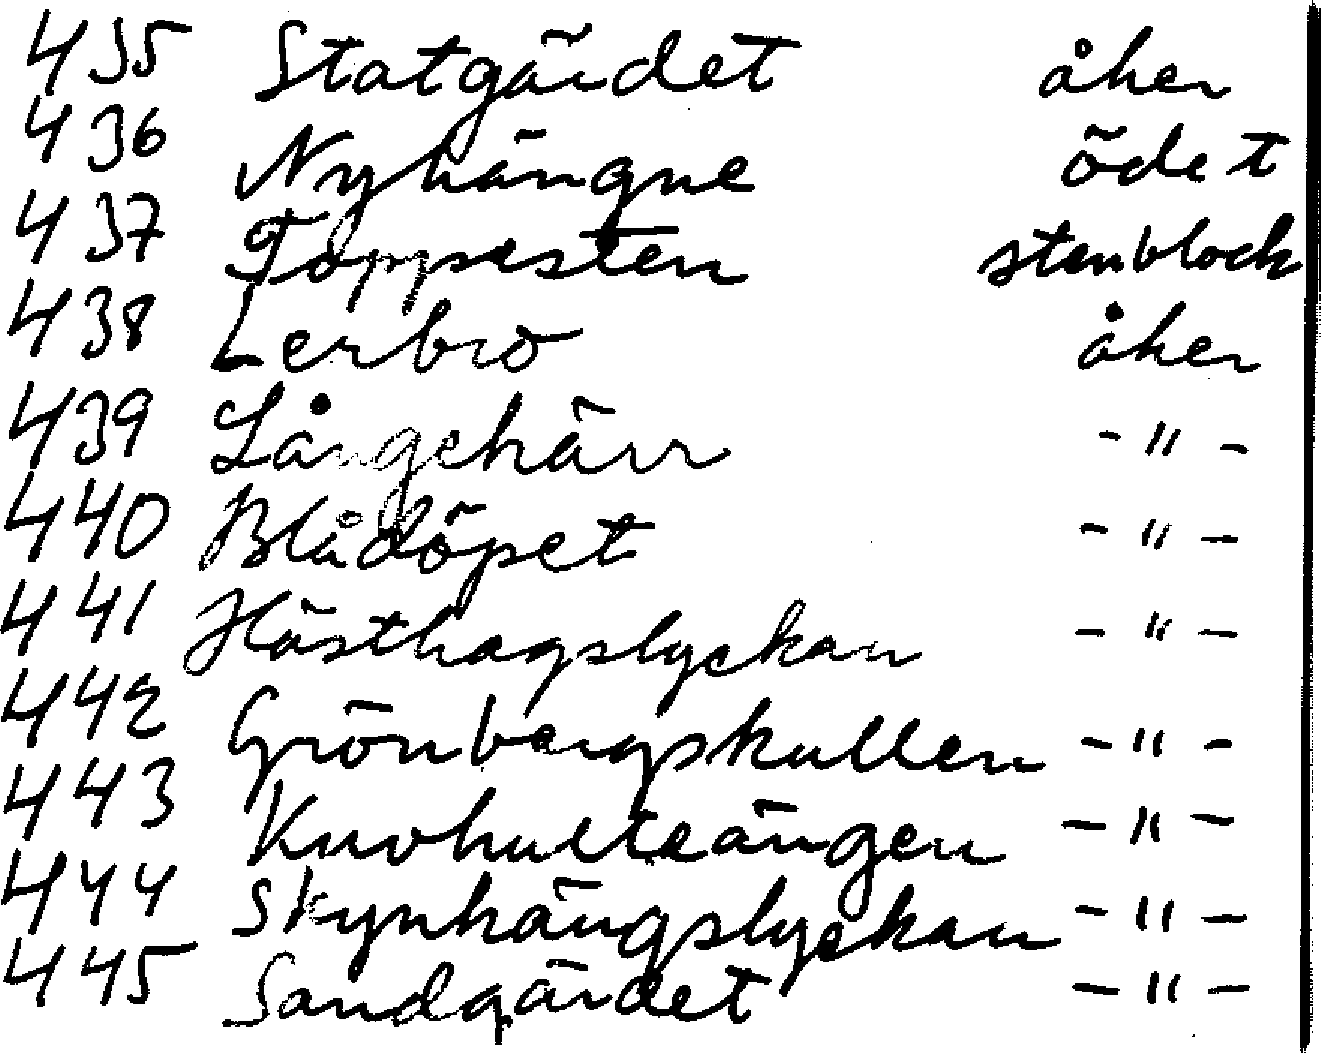 435 Statgärdet åker
436 Nyhängne ödet
437 Toppesten stenblock
438 Lerbro åker
439 Långehärr -"-
440 Blådöpet -"-
441 Hästhagslyckan -"-
442 Grönbergskullen -"-
443 Kuvhulteängen -"-
444 Skynhängslyckan -"-
445 Sandgärdet -"-